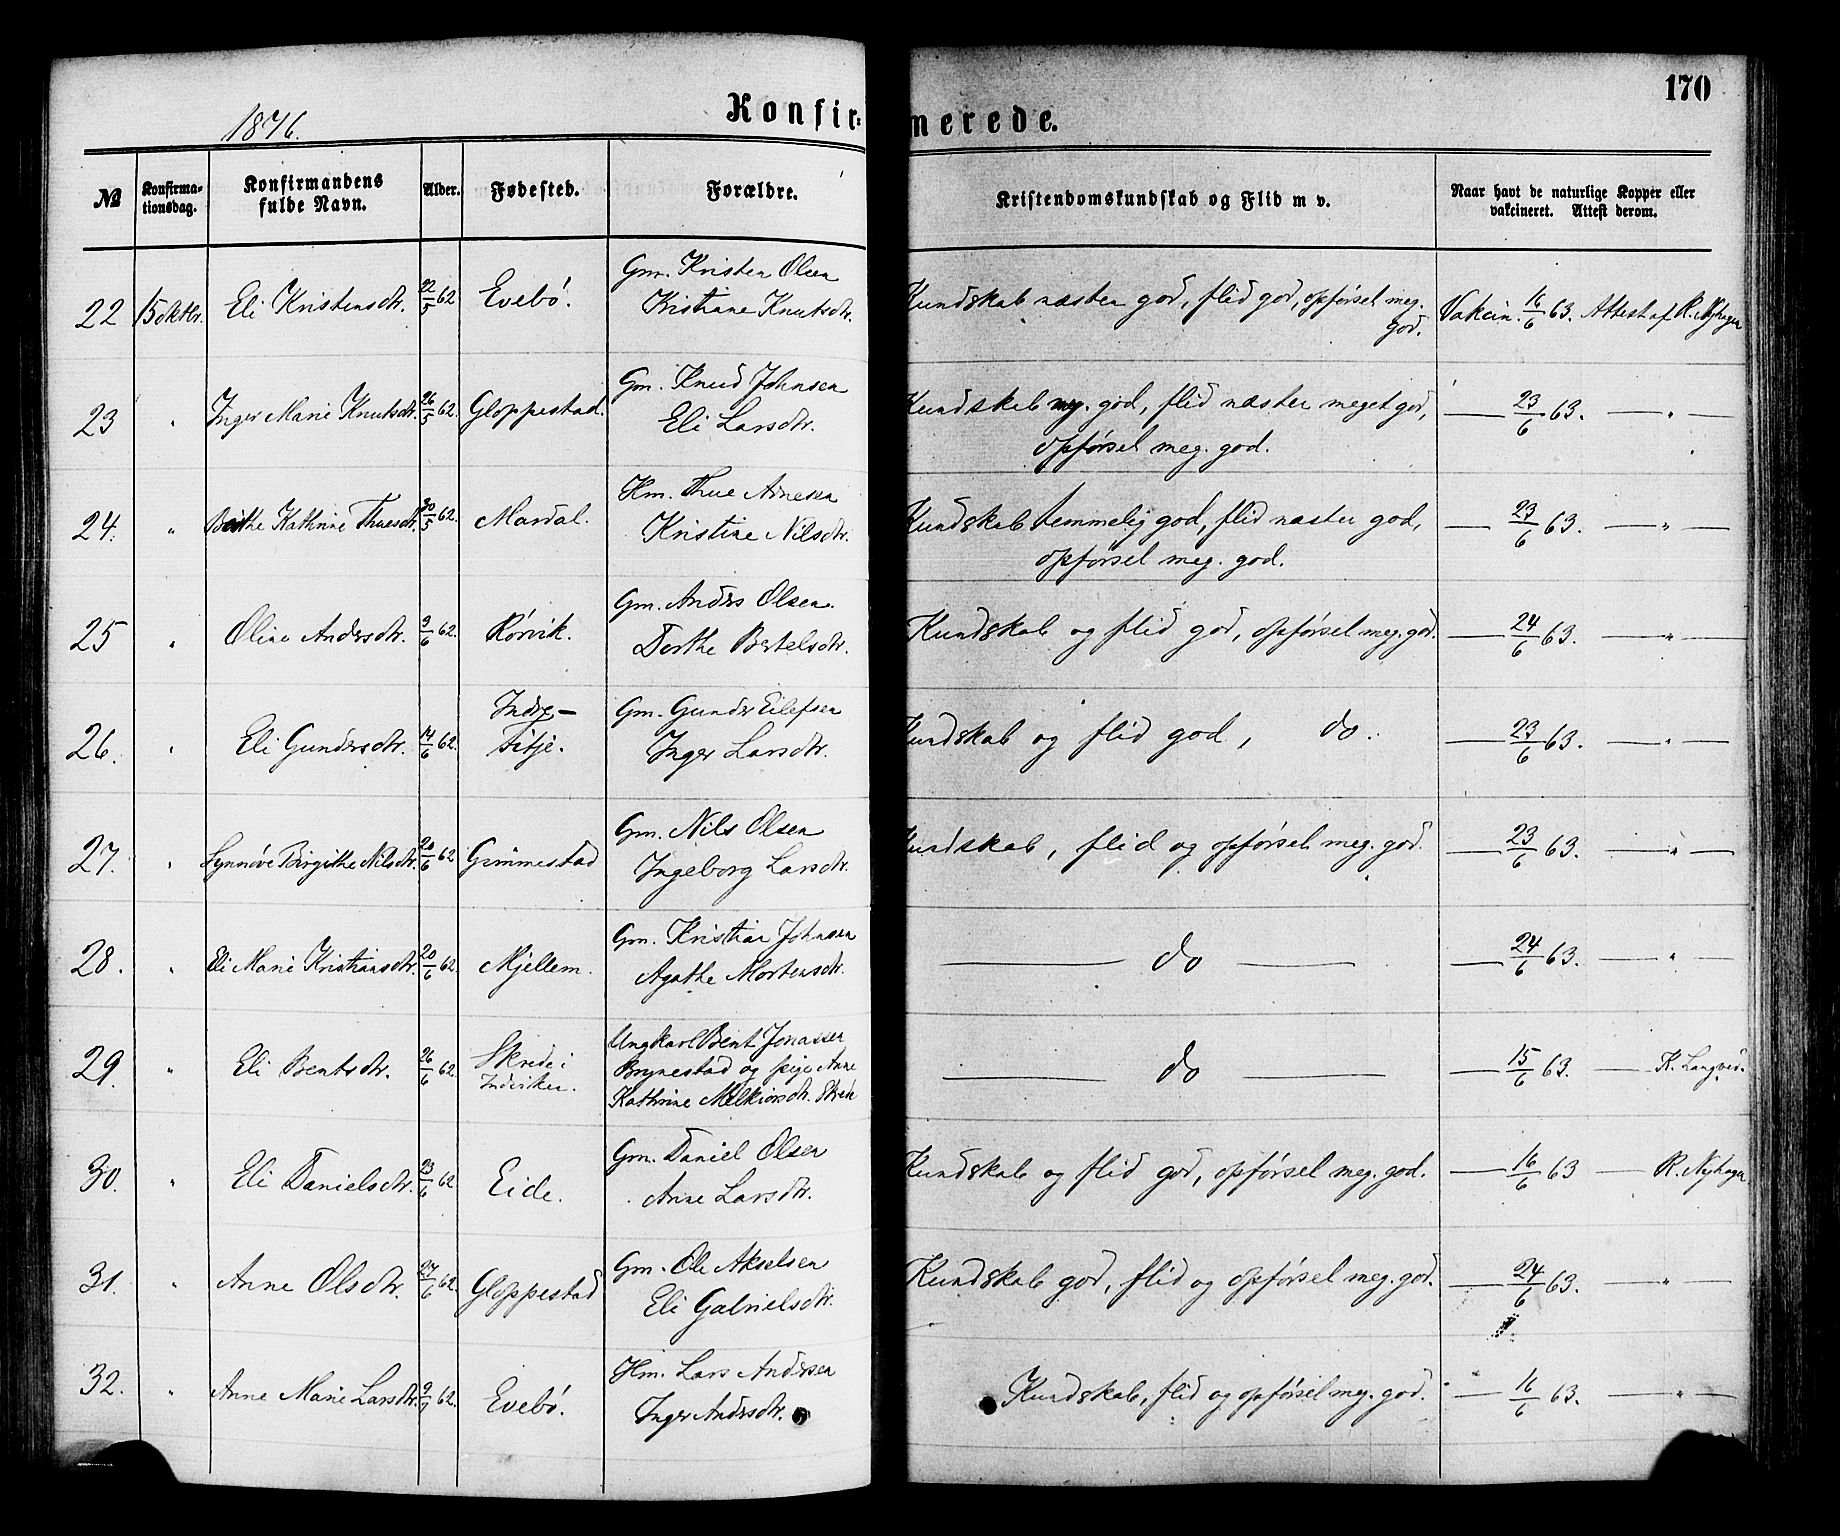 170
1876.
Konfir-
merede.
№
Konfirma-
tionsdag.
Konfirmandens
fulde Navn.
Alder.
Fødested.
Forældre.
Kristendomskundskab og Flid m v.
Naar havt de naturlige Kopper eller
vakcineret. Attest derom.
22 15 Oktbr. Eli Kristensdtr. 22/5 62 Evebö. Gm. Kristen Olsen
Kristiane Knutsdtr.
Kundskab næsten god, flid god, opförsel meg.
god.
Vakcin. 16/6 63. Attest af R. Nyhagen
23 " Inger Marie Knutsdtr. 26/5 62. Gloppestad. Gm. Knud Johnsen
Eli Larsdtr.
Kundskab meg. god, flid næsten meget god,
opförsel meg. god.
— 23/6 63. — " —
24. " Berthe Kathrine Thuesdtr. 30/5 62. Mardal. Hm. Thue Arnesen
Kristine Nilsdtr.
Kundskab temmelig god, flid næsten god,
opförsel meg. god.
— 23/6 63. — " —
25 " Oline Andersdtr. 9/6 62. Rörvik. Gm. Anders Olsen.
Dorthe Bertelsdtr.
Kundskab og flid god, opförsel meg. god.
— 24/6 63. — " —
26. " Eli Gundersdtr. 14/6 62. Indre-
Fitje.
Gm. Gunder Eilefsen
Inger Larsdtr.
Kundskab og flid god, do.
— 23/6 63. — " —
27. " Synnöve Birgithe Nilsdtr. 20/6 62 Gimmestad Gm. Nils Olsen
Ingeborg Larsdtr.
Kundskab, flid og opförsel meg. god.
— 23/6 63. — " —
28. " Eli Marie Kristiansdtr. 20/6 62. Mjellem. Gm. Kristian Johnsen
Agathe Mortensdtr.
— do —
— 24/6 63. — " —
29. " Eli Bentsdtr. 26/6 62. Skrede i
Indviken.
Ungkarl Bent Jonassen
Brynestad og pige Anne
Kathrine Melkiorsdtr. Skrede
— do —
— 15/6 63. — K. Langved.
30. " Eli Danielsdtr. 23/6 62. Eide. Gm. Daniel Olsen
Anne Larsdtr.
Kundskab og flid god, opförsel meg. god.
— 16/6 63 — R. Nyhagen
31. " Anne Olsdtr. 27/6 62. Gloppestad Gm. Ole Akselsen
Eli Gabrielsdtr.
Kundskab god, flid og opförsel meg. god.
— 24/6 63. — " —
32. " Anne Marie Larsdtr. 9/7 62. Evebö. Hm. Lars Andersen
Inger Andersdtr.
Kundskab, flid og opförsel meg. god.
— 16/6 63. — " —